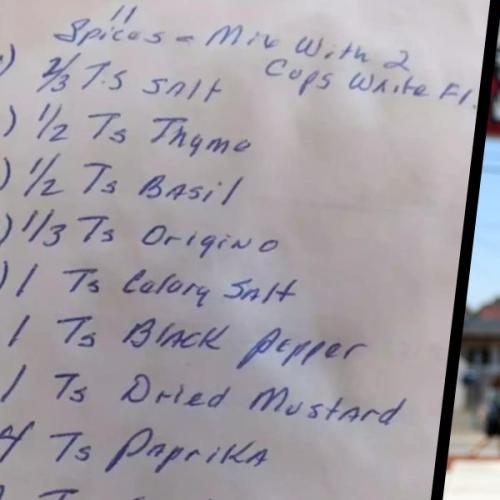 11
Spices - Mix With 2
Cups White Fl.
) 2/3 T.S SAlt
) 1/2 Ts Thyme
) 1/2 Ts BASil
) 1/3 Ts Origino
) 1 Ts Celary SAlt
1 Ts BlAcK pepper
1 Ts Dried MustArd
4 Ts PApriKA